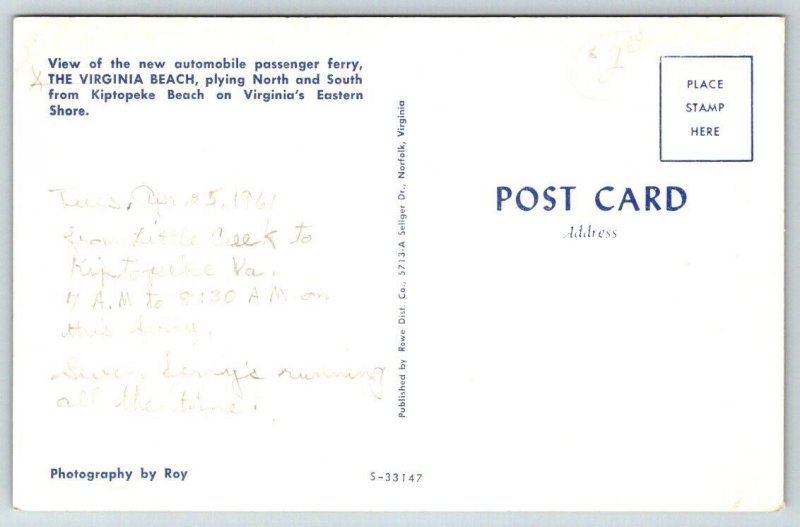 View of the new automobile passenger ferry,
THE VIRGINIA BEACH, plying North and South
from Kiptopeke Beach on Virginia's Eastern
Shore.
PLACE
STAMP
HERE
POST CARD
Address
Published by Rowe Dist. Co., 5713-A Sellger Dr., Norfolk, Virginia
Tues, Apr. 25, 1961
from Little Creek to
Kiptopeke Va.
7 A.M to 8:30 A M on
this ferry.
Seven ferry's running
all the time!
Photography by Roy
S-33147